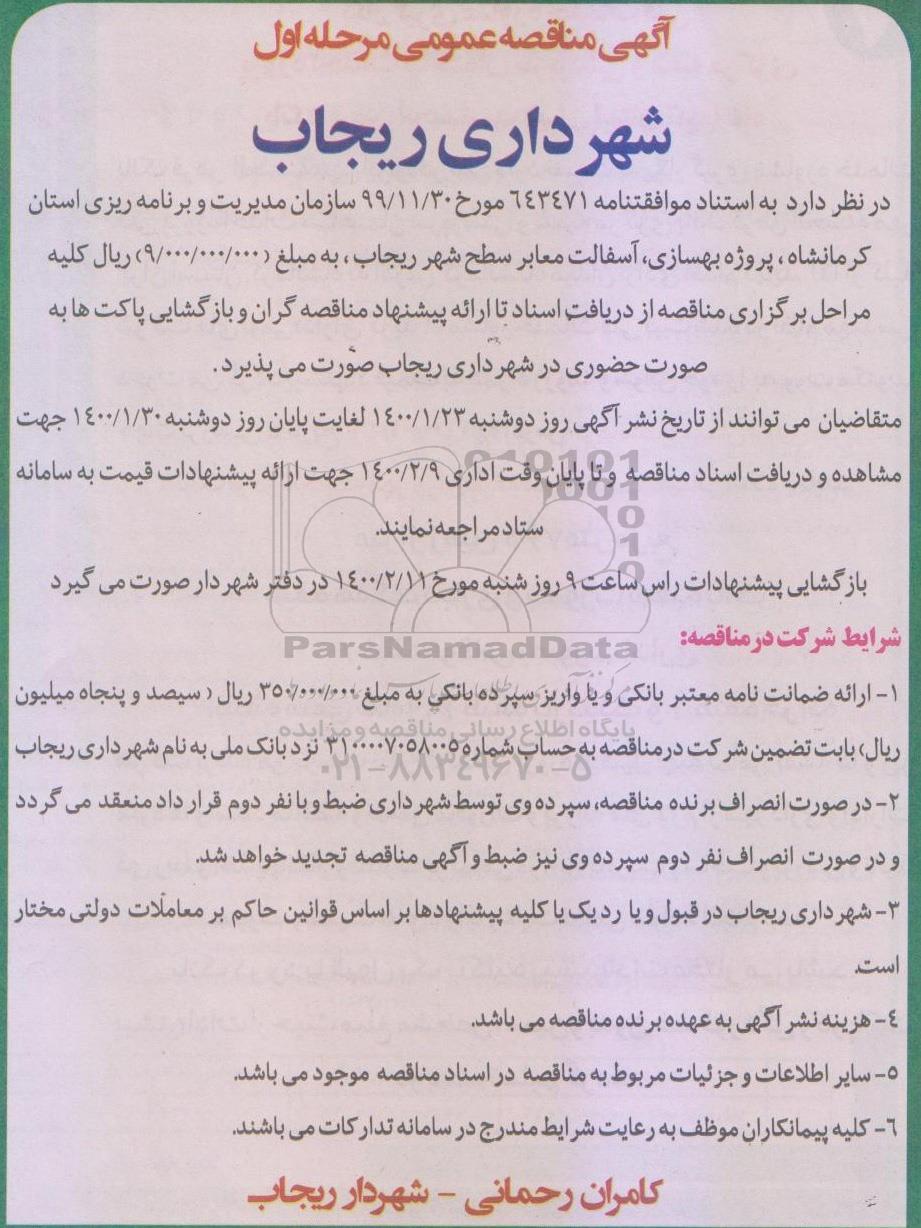 آگهی مناقصه عمومی مرحله اول
شهرداری ریجاب
در نظر دارد به استناد موافقتنامه ٦٤٣٤٧١ مورخ ٩٩/١١/٣٠ سازمان مدیریت و برنامه ریزی استان
کرمانشاه ، پروژه بهسازی، آسفالت معابر سطح شهر ریجاب ، به مبلغ (٩/٠٠٠/٠٠٠/٠٠٠) ریال کلیه
مراحل برگزاری مناقصه از دریافت اسناد تا ارائه پیشنهاد مناقصه گران و بازگشایی پاکت ها به
صورت حضوری در شهرداری ریجاب صورت می پذیرد.
متقاضیان می توانند از تاریخ نشر آگهی روز دوشنبه ١٤٠٠/١/٢٣ لغایت پایان روز دوشنبه ١٤٠٠/١/٣٠ جهت
مشاهده و دریافت اسناد مناقصه و تا پایان وقت اداری ١٤٠٠/٢/٩ جهت ارائه پیشنهادات قیمت به سامانه
ستاد مراجعه نمایند.
بازگشایی پیشنهادات راس ساعت ٩ روز شنبه مورخ ١٤٠٠/٢/١١ در دفتر شهردار صورت می گیرد
شرایط شرکت در مناقصه:
ParsNamadData
١- ارائه ضمانت نامه معتبر بانکی و یا واریز سپرده بانکی به مبلغ ٣٥٠/٠٠٠/٠٠٠ ریال ( سیصد و پنجاه میلیون
پایگاه اطلاع رسانی مناقصه و مزایده
ریال) بابت تضمین شرکت در مناقصه به حساب شماره ٣١٠٠٠٠٧٠٥٨٠٠٥ نزد بانک ملی به نام شهرداری ریجاب
٠٢١-٨٨٣٤٩٦٧٠-٥
٢- در صورت انصراف برنده مناقصه، سپرده وی توسط شهرداری ضبط و با نفر دوم قرار داد منعقد می گردد
و در صورت انصراف نفر دوم سپرده وی نیز ضبط و آگهی مناقصه تجدید خواهد شد.
٣- شهرداری ریجاب در قبول و یا رد یک یا کلیه پیشنهادها بر اساس قوانین حاکم بر معاملات دولتی مختار
است.
٤- هزینه نشر آگهی به عهده برنده مناقصه می باشد.
٥- سایر اطلاعات و جزئیات مربوط به مناقصه در اسناد مناقصه موجود می باشد.
٦- کلیه پیمانکاران موظف به رعایت شرایط مندرج در سامانه تدارکات می باشند.
کامران رحمانی - شهردار ریجاب